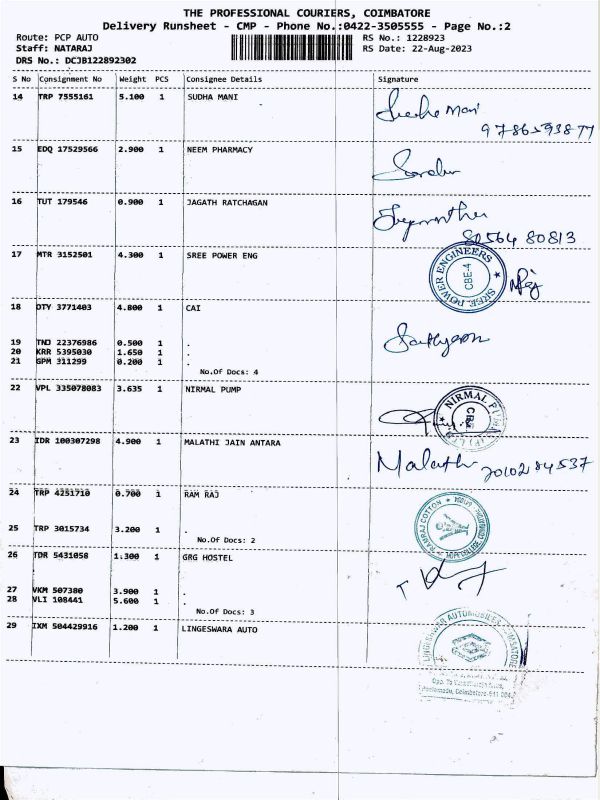 THE PROFESSIONAL COURIERS, COIMBATORE
Delivery Runsheet - CMP - Phone No.:0422-3505555 - Page No.:2
Route: PCP AUTO RS No.: 1228923
Staff: NATARAJ RS Date: 22-Aug-2023
DRS No.: DCJB122892302
S No Consignment No Weight PCS Consignee Details Signature
14 TRP 7555161 5.100 1 SUDHA MANI
15 EDQ 17529566 2.900 1 NEEM PHARMACY
16 TUT 179546 0.900 1 JAGATH RATCHAGAN
80564 80813
17 MTR 3152501 4.300 1 SREE POWER ENG
SREE POWER ENGINEERS
CBE-4
18 OTY 3771403 4.800 1 CAI
19 TNJ 22376986 0.500 1 .
20 KRR 5395030 1.650 1 .
21 GPM 311299 0.200 1 .
No.Of Docs: 4
22 VPL 335078083 3.635 1 NIRMAL PUMP
NIRMAL
23 IDR 100307298 4.900 1 MALATHI JAIN ANTARA
Malathi
24 TRP 4251710 0.700 1 RAM RAJ
RAMRAJ COTTON
25 TRP 3015734 3.200 1 .
No.Of Docs: 2
26 TDR 5431058 1.300 1 GRG HOSTEL
27 VKM 507380 3.900 1 .
28 VLI 108441 5.600 1 .
No.Of Docs: 3
29 IXM 504429916 1.200 1 LINGESWARA AUTO
LINGESHWAR AUTOMOBILES